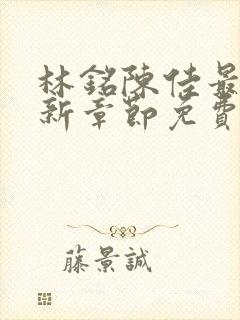 林銘陳佳最
新章節免費
藤景誠